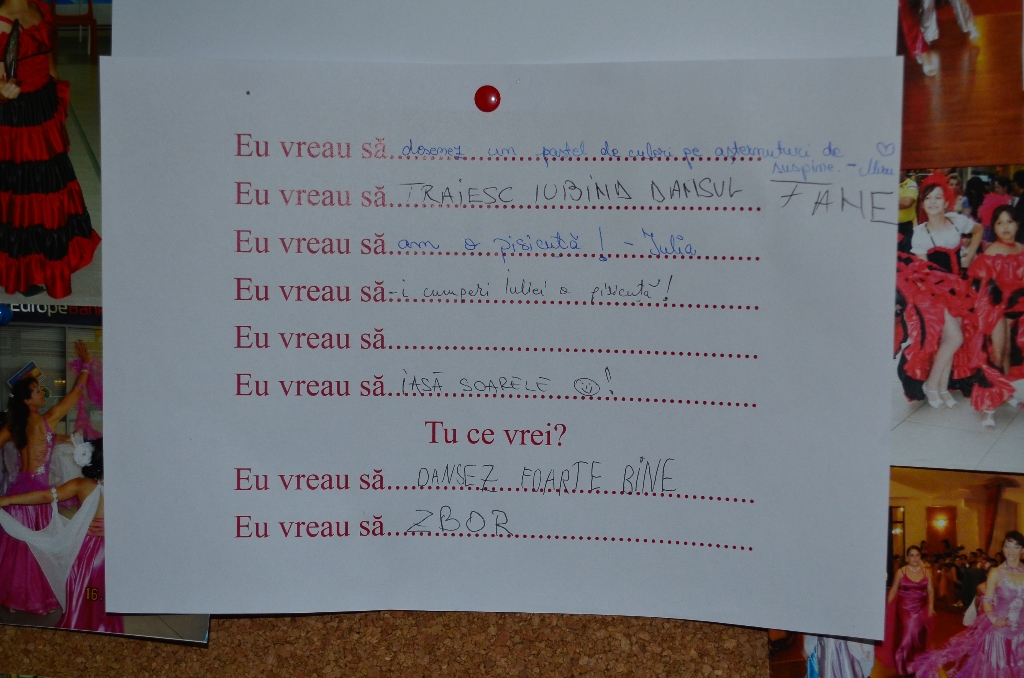 Eu vreau să desenez un pastel de culori pe așternuturi de
suspine. - Miru
Eu vreau să TRAIESC IUBIND DANSUL FANE
Eu vreau să am o pisicuță! - Iulia
Eu vreau să -i cumperi Iuliei o pisicuță!
Eu vreau să
Eu vreau să IASĂ SOARELE ☺!
Tu ce vrei?
Eu vreau să DANSEZ FOARTE BINE
Eu vreau să ZBOR
EuropeBank
16.